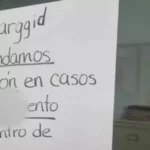 ndamos
ón en casos
ento
ntro de